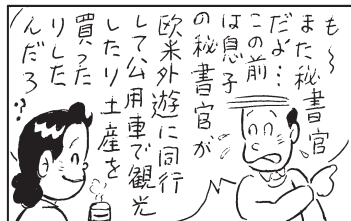 も～
また秘書官
だよ…
この前
は息子
の秘書官が
欧米外遊に同行
して公用車で観光
したり土産を
買った
りした
んだろ
?